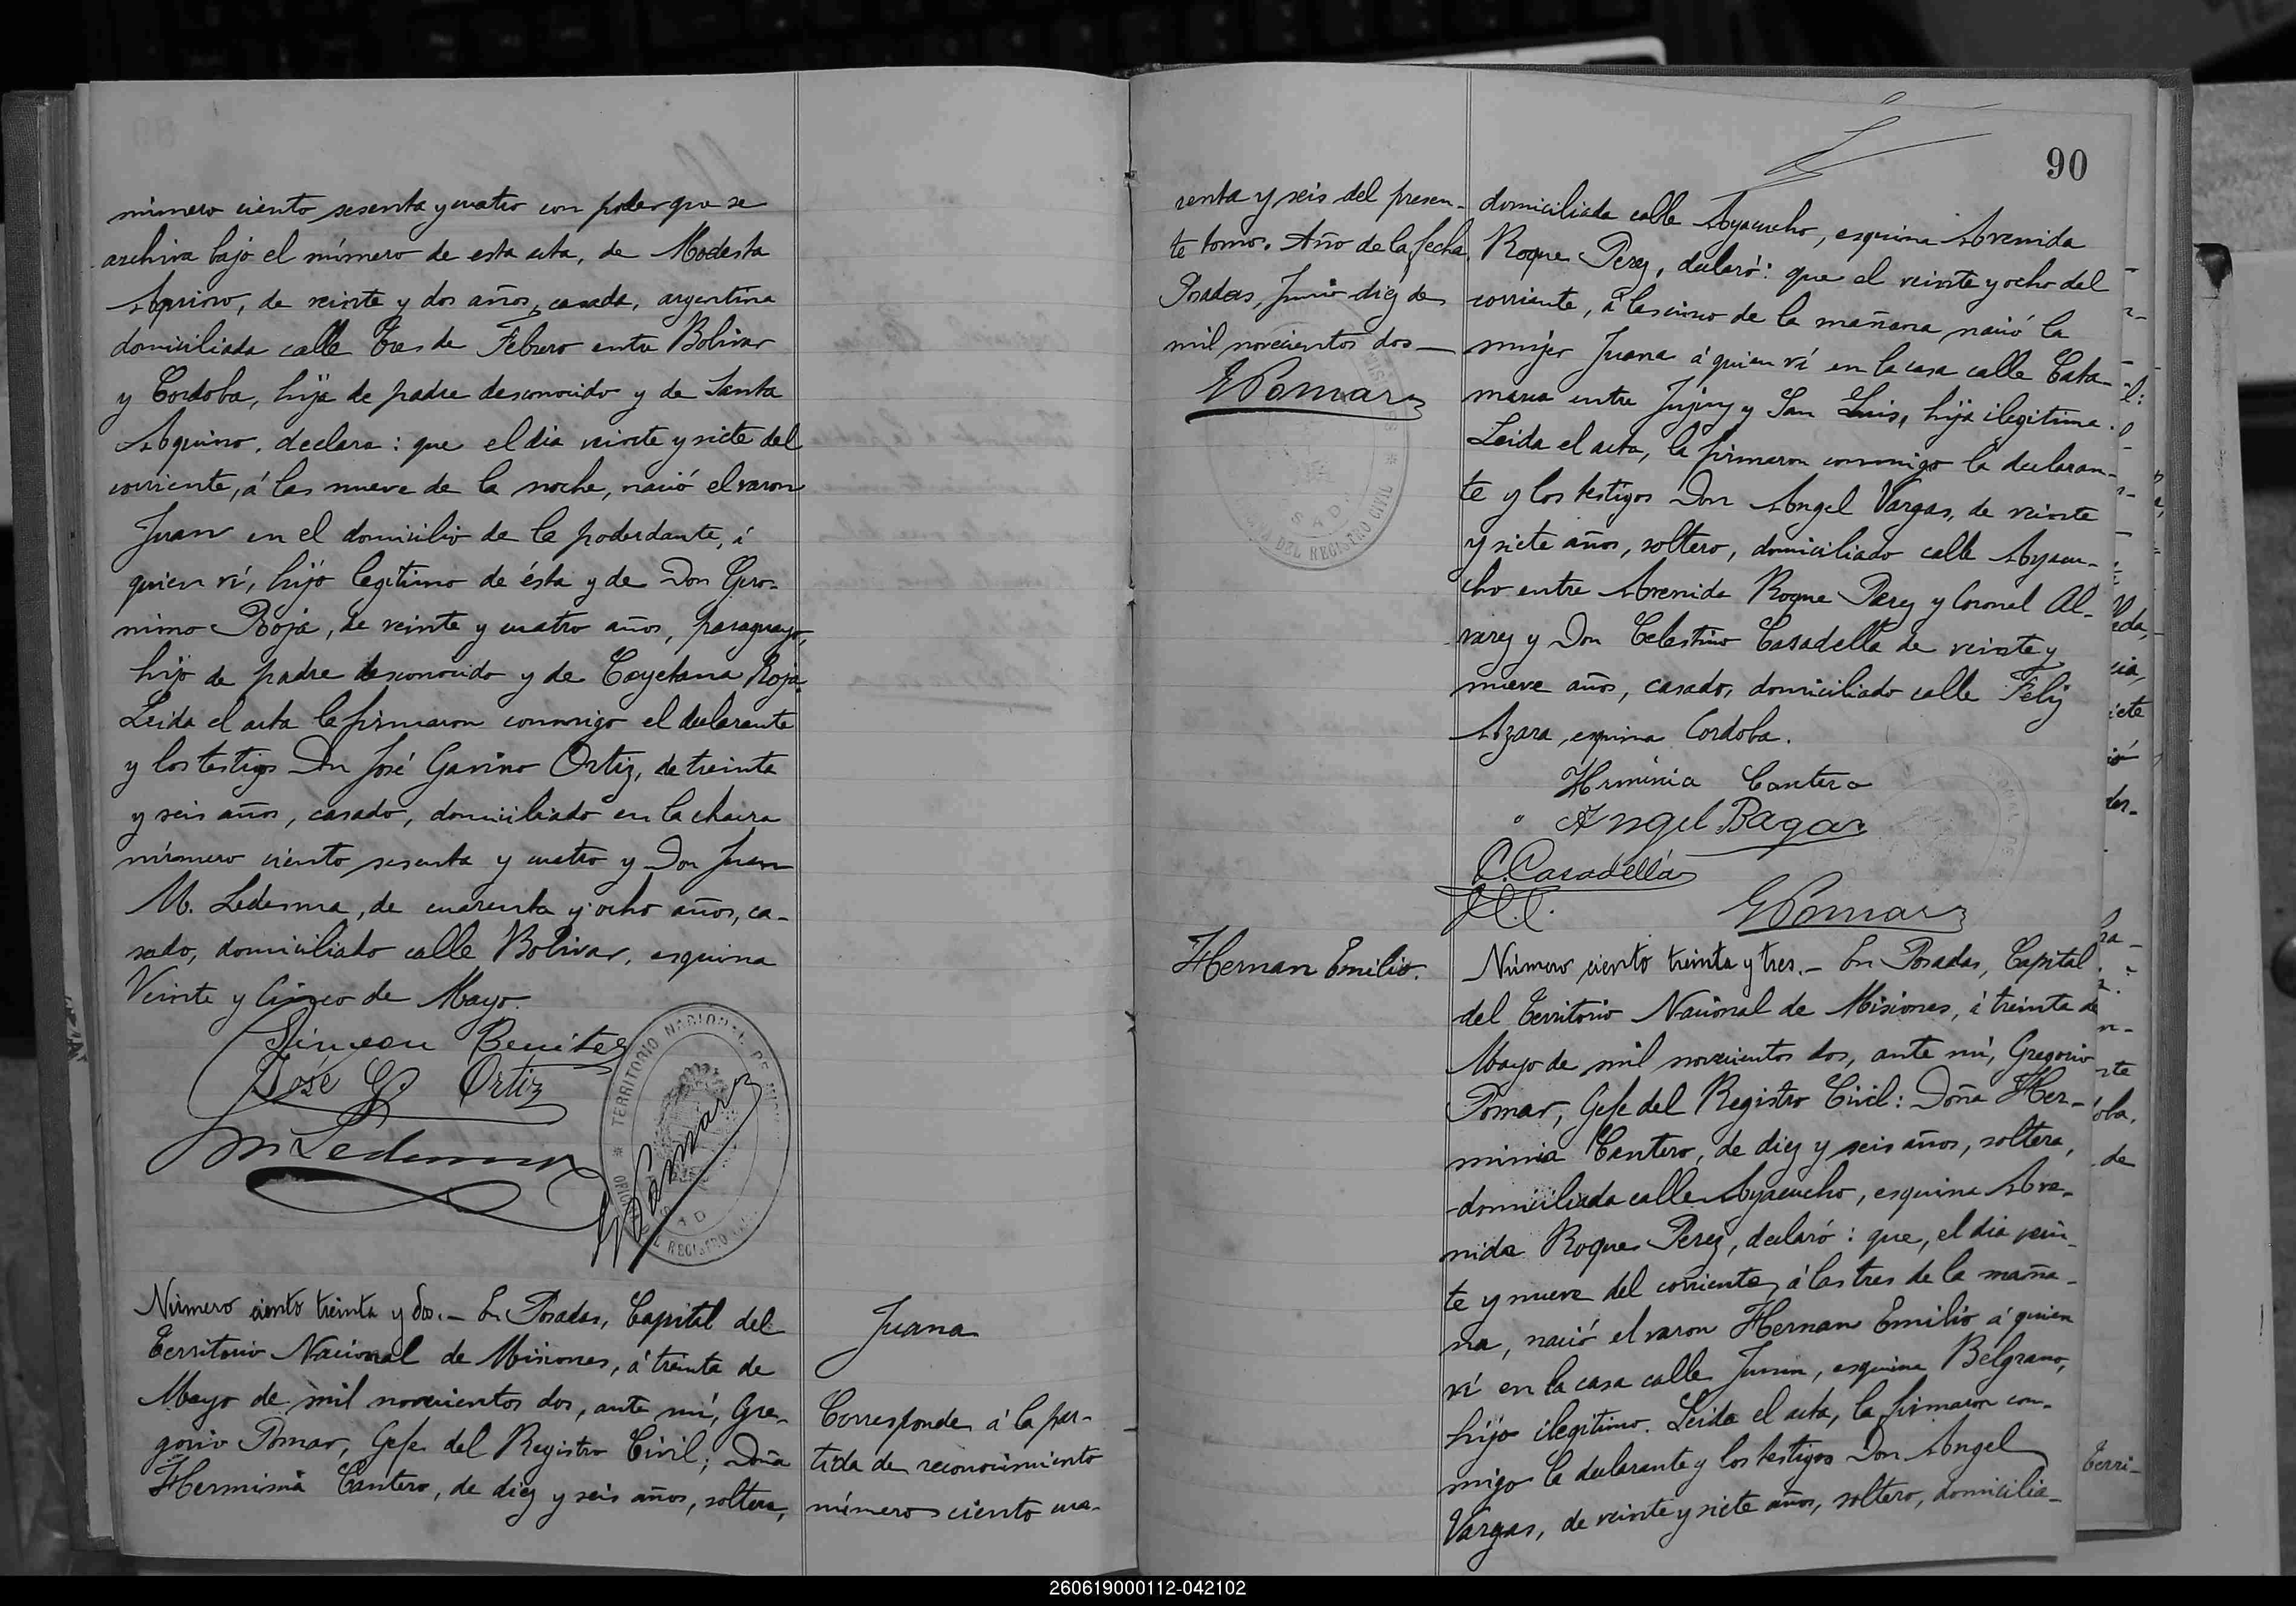 número ciento sesenta y cuatro con poder que se
archiva bajo el número de esta acta, de Modesta
Aquino, de veinte y dos años, casada, argentina
domiciliada calle Tres de Febrero entre Bolivar
y Cordoba, hija de padre desconocido y de Santa
Aquino, declara: que el dia veinte y siete del
corriente, á las nueve de la noche, nació el varon
Juan en el domicilio de la poderdante, á
quien ví, hijo legítimo de ésta y de Don Gero-
nimo Roja, de veinte y cuatro años, paraguayo,
hijo de padre desconocido y de Cayetana Roja.
Leida el acta la firmaron conmigo el declarante
y los testigos Don José Gavino Ortiz, de treinta
y seis años, casado, domiciliado en la chacra
número ciento sesenta y cuatro y Don Juan
M. Ledesma, de cuarenta y ocho años, ca-
sado, domiciliado calle Bolivar, esquina
Veinte y Cinco de Mayo.
Simeon Benites
José G. Ortiz
M Ledesma
GPomar
TERRITORIO NACIONAL DE
REGISTRO
Número ciento treinta y dos.- En Posadas, Capital del
Territorio Nacional de Misiones, á treinta de
Mayo de mil novecientos dos, ante mí, Gre-
gorio Pomar, Gefe del Registro Civil; Doña
Herminia Cantero, de diez y seis años, soltera,
Juana
Corresponde á la par-
tida de reconocimiento
número ciento cua-
renta y seis del presen-
te tomo. Año de la fecha.
Posadas, Junio diez de
mil novecientos dos
GPomar
DEL REGISTRO CIVIL
90
domiciliada calle Ayacucho, esquina Avenida
Roque Perez, declaró: que el veinte y ocho del
corriente, á las cinco de la mañana nació la
mujer Juana á quien ví en la casa calle Cata-
marca entre Jujuy y San Luis, hija ilegitima.
Leida el acta, la firmaron conmigo la declaran-
te y los testigos Don Angel Vargas, de veinte
y siete años, soltero, domiciliado calle Ayacu-
cho entre Avenida Roque Perez y Coronel Al-
varez y Don Celestino Casadella de veinte y
nueve años, casado, domiciliado calle Feliz
Azara, esquina Cordoba.
Hrminia Cantero
Angel Bagas
C. Casadella
GPomar
Hernan Emilio.
Número ciento treinta y tres.- En Posadas, Capital
del Territorio Nacional de Misiones, á treinta de
Mayo de mil novecientos dos, ante mí, Gregorio
Pomar, Gefe del Registro Civil: Doña Her-
minia Cantero, de diez y seis años, soltera,
domiciliada calle Ayacucho, esquina Ave-
nida Roque Perez, declaró: que, el dia vein-
te y nueve del corriente, á las tres de la maña-
na, nació el varon Hernan Emilio á quien
ví en la casa calle Junin, esquina Belgrano,
hijo ilegítimo. Leida el acta, la firmaron con-
migo la declarante y los testigos Don Angel
Vargas, de veinte y siete años, soltero, domicilia-
260619000112-042102